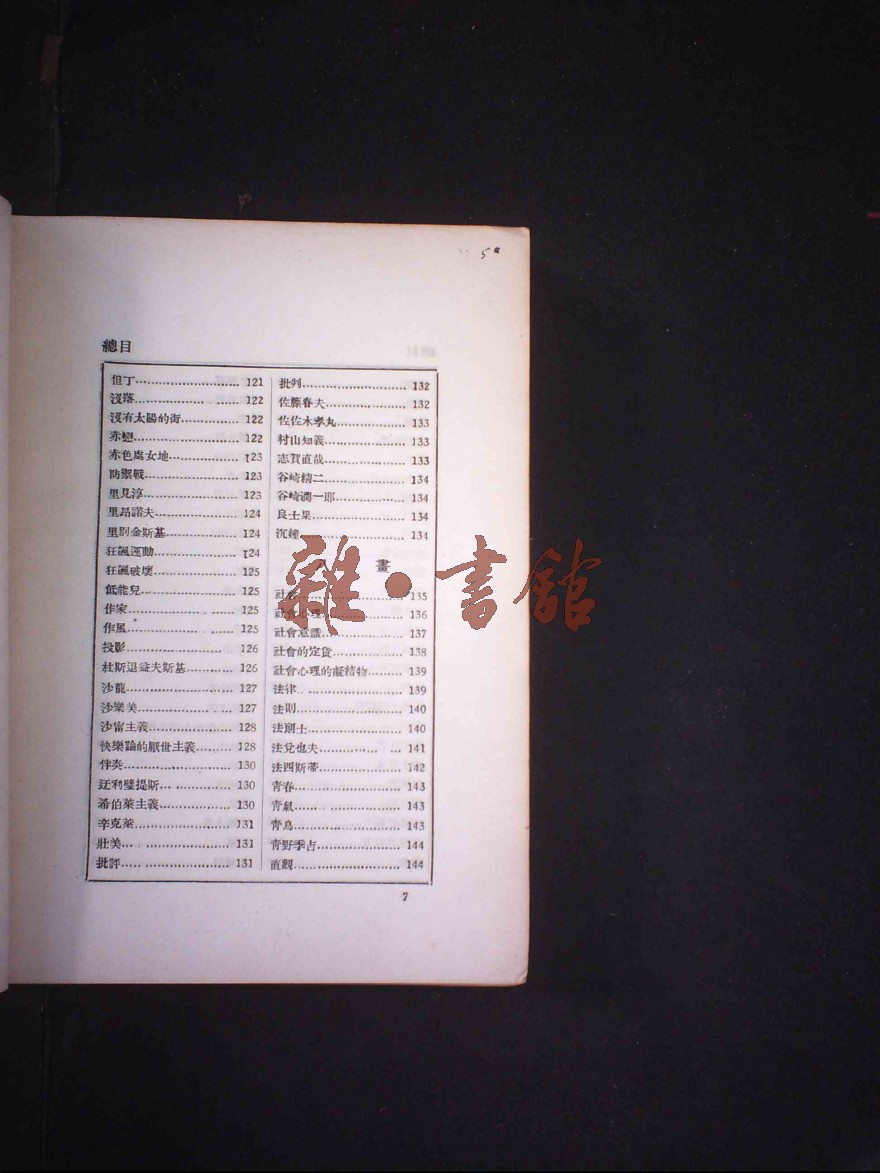 5
總目
但丁 121
沒落 122
沒有太陽的街 122
赤戀 122
赤色處女地 123
防禦戰 123
里見淳 123
里昂諾夫 124
里別金斯基 124
狂飆運動 124
狂飆破壞 125
低能兒 125
作家 125
作風 125
投影 126
杜斯退益夫斯基 126
沙龍 127
沙樂美 127
沙甯主義 128
快樂論的厭世主義 128
伴奏 130
迂利璧提斯 130
希伯萊主義 130
辛克萊 131
壯美 131
批評 131
批判 132
佐藤春夫 132
佐佐木孝丸 133
村山知義 133
志賀直哉 133
谷崎精二 134
谷崎潤一郎 134
良士果 134
沉鐘 134
畫
社會 135
社會心理 136
社會意識 137
社會的定貨 138
社會心理的凝結物 139
法律 139
法則 140
法朗士 140
法兌也夫 141
法西斯蒂 142
青春 143
青氣 143
青鳥 143
青野季吉 144
直觀 144
7
雜·書館